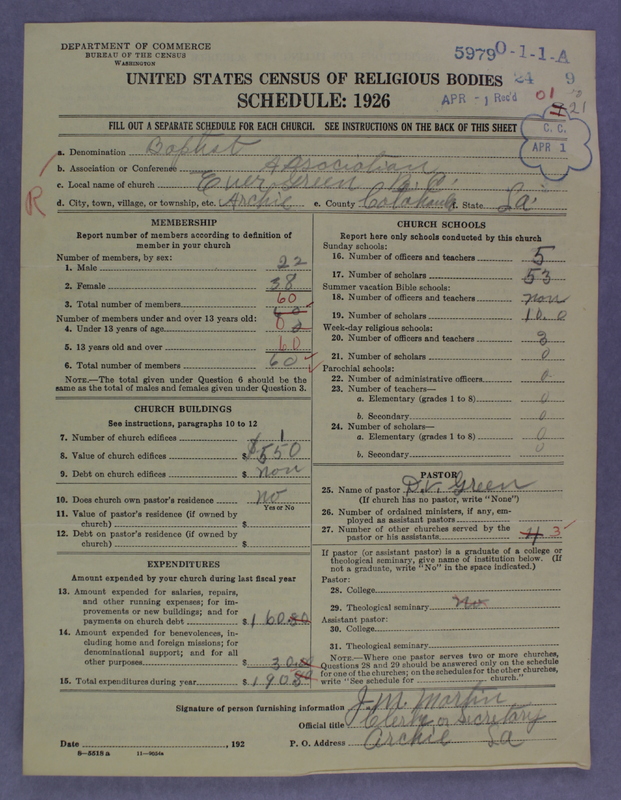 DEPARTMENT OF COMMERCE
BUREAU OF THE CENSUS
WASHINGTON
59790-1-1-A
24 9
UNITED STATES CENSUS OF RELIGIOUS BODIES
APR - 1 Rec'd 01
21
SCHEDULE: 1926
FILL OUT A SEPARATE SCHEDULE FOR EACH CHURCH. SEE INSTRUCTIONS ON THE BACK OF THIS SHEET
C. C.
APR 1
R
a. Denomination Baptist
b. Association or Conference Association
c. Local name of church Ever Green B. C.
d. City, town, village, or township, etc. Archie e. County Catahoula f. State La
MEMBERSHIP
Report number of members according to definition of
member in your church
Number of members, by sex:
1. Male 22
2. Female 38
3. Total number of members 60
Number of members under and over 13 years old:
4. Under 13 years of age 0
5. 13 years old and over 60
6. Total number of members 60
NOTE.—The total given under Question 6 should be
same as the total of males and females given under Question 3.
CHURCH BUILDINGS
See instructions, paragraphs 10 to 12
7. Number of church edifices 1
8. Value of church edifices $ 550
9. Debt on church edifices $ non
10. Does church own pastor's residence no
Yes or No
11. Value of pastor's residence (if owned by
church) $
12. Debt on pastor's residence (if owned by
church) $
EXPENDITURES
Amount expended by your church during last fiscal year
13. Amount expended for salaries, repairs,
and other running expenses; for im-
provements or new buildings; and for
payments on church debt $ 160
14. Amount expended for benevolences, in-
cluding home and foreign missions; for
denominational support; and for all
other purposes $ 30
15. Total expenditures during year $ 190
CHURCH SCHOOLS
Report here only schools conducted by this church
Sunday schools:
16. Number of officers and teachers 5
17. Number of scholars 53
Summer vacation Bible schools:
18. Number of officers and teachers non
19. Number of scholars
Week-day religious schools:
20. Number of officers and teachers
21. Number of scholars 0
Parochial schools:
22. Number of administrative officers 0
23. Number of teachers—
a. Elementary (grades 1 to 8) 0
b. Secondary 0
24. Number of scholars—
a. Elementary (grades 1 to 8) 0
b. Secondary 0
PASTOR
25. Name of pastor D.V. Green
(If church has no pastor, write "None")
26. Number of ordained ministers, if any, em-
ployed as assistant pastors
27. Number of other churches served by the
pastor or his assistants 4 3
If pastor (or assistant pastor) is a graduate of a college or
theological seminary, give name of institution below. (If
not a graduate, write "No" in the space indicated.)
Pastor:
28. College
29. Theological seminary No
Assistant pastor:
30. College
31. Theological seminary
NOTE.—Where one pastor serves two or more churches,
Questions 28 and 29 should be answered only on the schedule
for one of the churches; on the schedules for the other churches,
write "See schedule for church."
Signature of person furnishing information J.M. Martin
Official title Clerk or Secretary
Date , 192 P. O. Address Archie La
8—5518 a 11—9034a